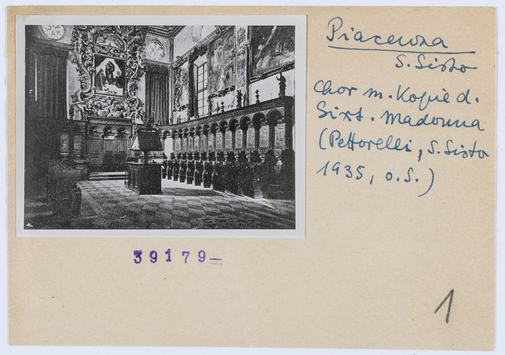 Piacenza
S. Sisto
Chor m. Kopie d.
Sixt. Madonna
(Pettorelli, S. Sisto
1935, o. S.)
39179—
1